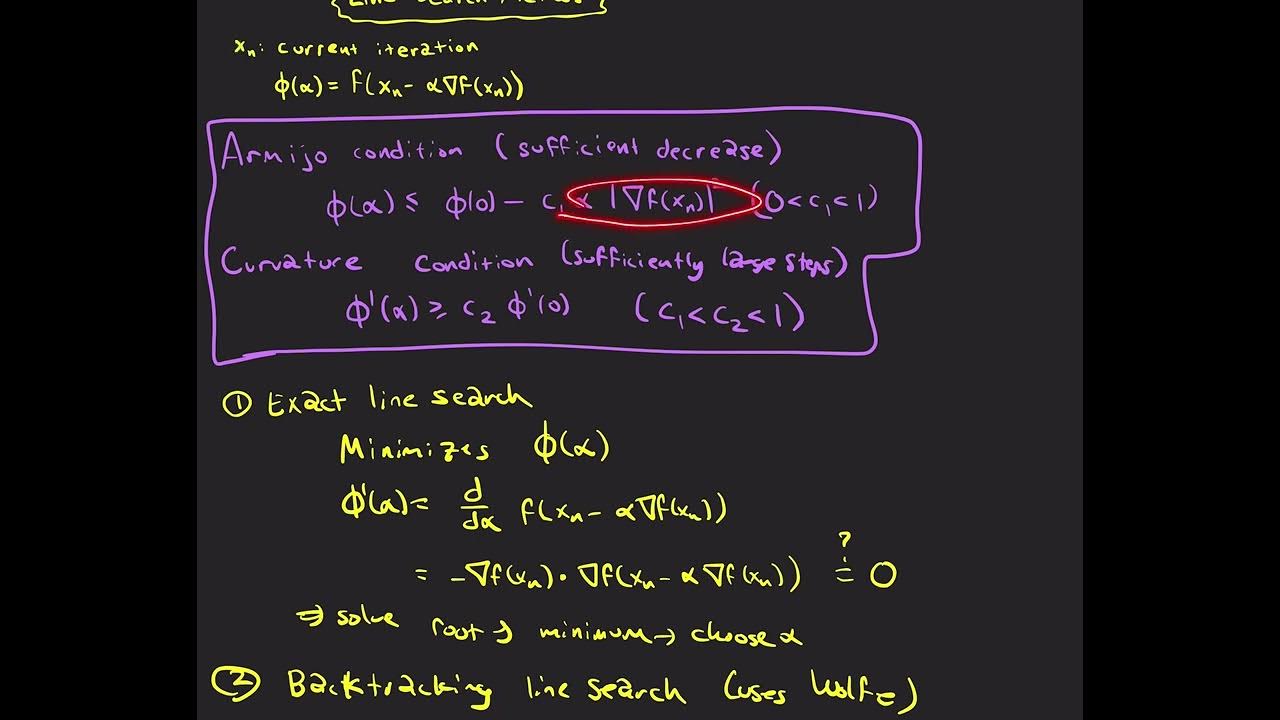 Line search
xₙ: current iteration
ϕ(α) = f(xₙ - α∇f(xₙ))
Armijo condition (sufficient decrease)
ϕ(α) ≤ ϕ(0) - c₁ α |∇f(xₙ)|² (0 < c₁ < 1)
Curvature condition (sufficiently large steps)
ϕ'(α) ≥ c₂ ϕ'(0) (c₁ < c₂ < 1)
① Exact line search
Minimizes ϕ(α)
ϕ'(α) = d/dα f(xₙ - α∇f(xₙ))
= -∇f(xₙ) · ∇f(xₙ - α∇f(xₙ)) ≟ 0
⇒ solve root → minimum → choose α
② Backtracking line search (uses Wolfe)